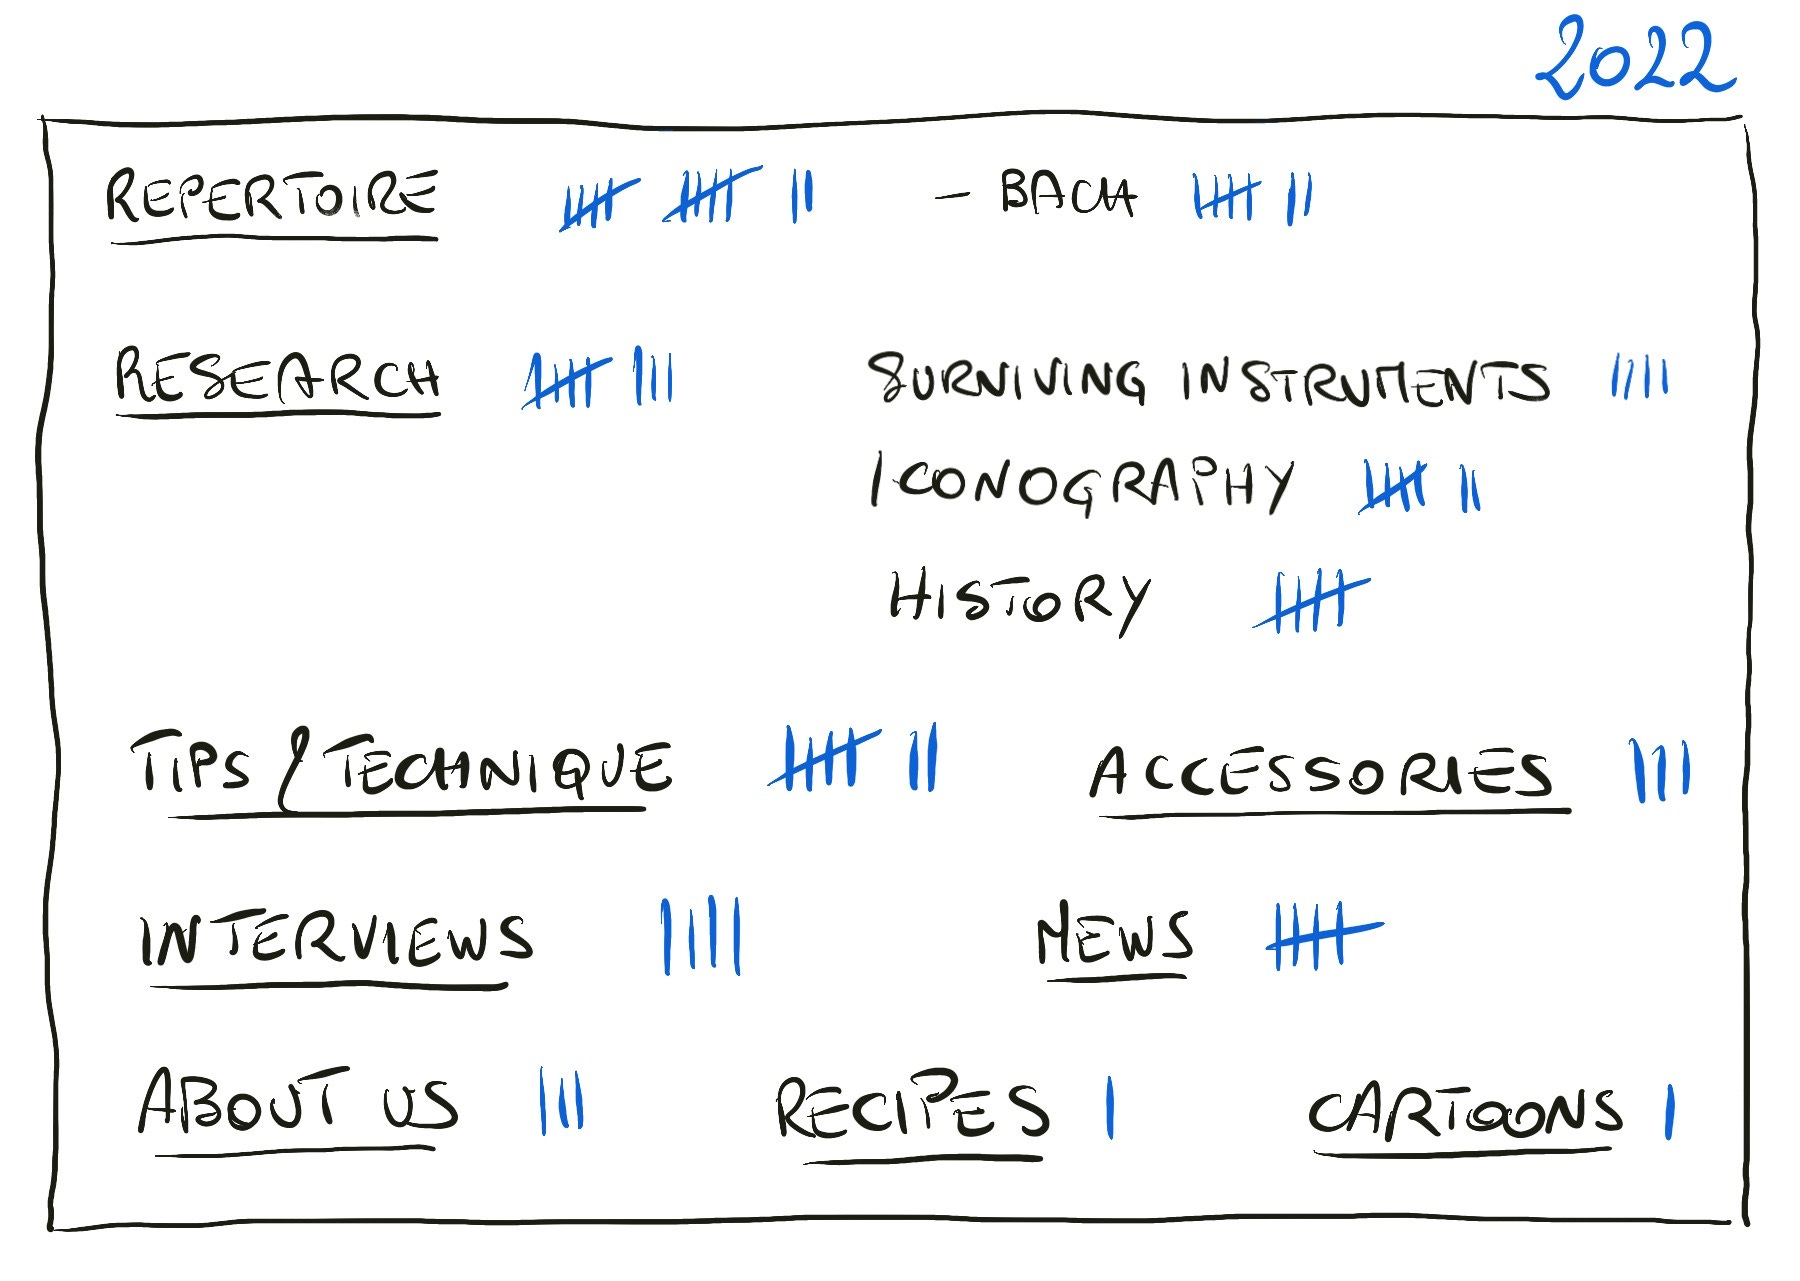 2022
REPERTOIRE - BACH
RESEARCH SURVIVING INSTRUMENTS
ICONOGRAPHY
HISTORY
TIPS / TECHNIQUE ACCESSORIES
INTERVIEWS NEWS
ABOUT US RECIPES CARTOONS